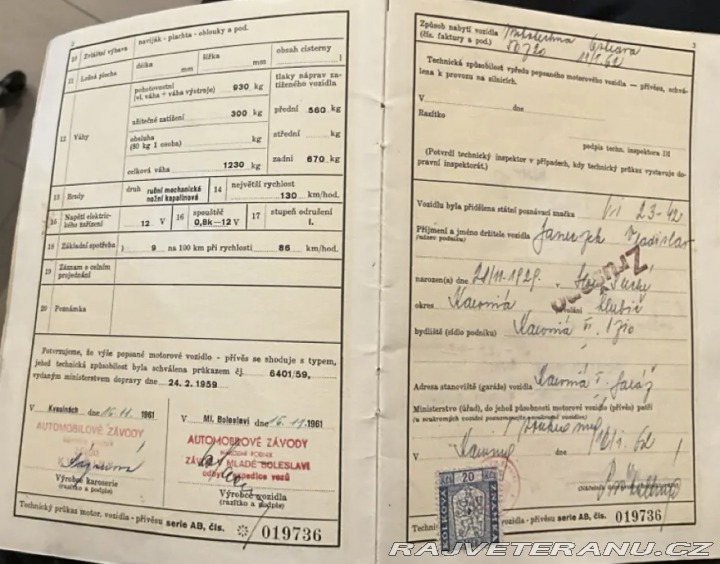 2
10 Zvláštní výbava
naviják - plachta - oblouky a pod.
11 Ložná plocha
délka mm
šířka mm
obsah cisterny
l
12 Váhy
pohotovostní
(vl. váha + váha výstroje) 930 kg
užitečné zatížení 300 kg
obsluha
(80 kg 1 osoba) kg
celková váha 1230 kg
tlaky náprav za-
tíženého vozidla
přední 560 kg
střední kg
zadní 670 kg
13 Brzdy
druh ruční mechanická
nožní kapalinová
14 největší rychlost
130 km/hod.
15 Napětí elektric-
kého zařízení
12 V
16 spouště
0,8k—12 V
17 stupeň odrušení
I.
18 Základní spotřeba
9 na 100 km při rychlosti 86 km/hod.
19 Záznam o celním
projednání
20 Poznámka
Potvrzujeme, že výše popsané motorové vozidlo - přívěs se shoduje s typem,
jehož technická způsobilost byla schválena průkazem čj. 6401/59,
vydaným ministerstvem dopravy dne 24. 2. 1959
V Kvasinách dne 16.11. 1961
AUTOMOBILOVÉ ZÁVODY
Výrobce karoserie
(razítko a podpis)
V Ml. Boleslavi dne 1961
AUTOMOBILOVÉ ZÁVODY
NÁRODNÍ PODNIK
MLADÉ BOLESLAVI
odbyt expedice vozů
Výrobce vozidla
(razítko a podpis)
Technický průkaz motor. vozidla - přívěsu serie AB, čís. 019736
3
Způsob nabytí vozidla
(čís. faktury a pod.)
Technická způsobilost vpředu popsaného motorového vozidla — přívěsu, schvá-
lena k provozu na silnicích.
V dne
Razítko
podpis techn. inspektora DI
(Potvrdí technický inspektor v případech, kdy technický průkaz vystavuje do-
pravní inspektorát.)
Vozidlu byla přidělena státní poznávací značka 23-42
Příjmení a jméno držitele vozidla
(název podniku)
Zrušeno
narozen(a) dne
okres Karviná
bydliště (sídlo podniku) Karviná
Adresa stanoviště (garáže) vozidla Karviná
Ministerstvo (úřad), do jehož působnosti motorové vozidlo (přívěs) patří
V dne
KOLKOVÁ
20
Techni vozidla - přívěsu serie AB, čís. 019736
RAJVETERANU.CZ